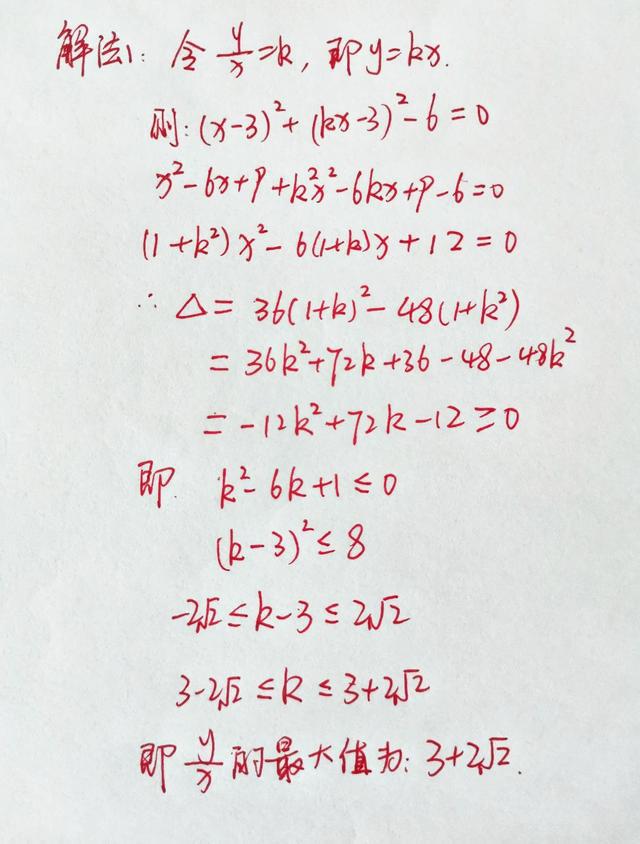 解法1: 令 y/x=k, 即y=kx.
则: (x-3)²+(kx-3)²-6=0
x²-6x+9+k²x²-6kx+9-6=0
(1+k²)x²-6(1+k)x+12=0
∴ △=36(1+k)²-48(1+k²)
=36k²+72k+36-48-48k²
=-12k²+72k-12≥0
即 k²-6k+1≤0
(k-3)²≤8
-2√2≤k-3≤2√2
3-2√2≤k≤3+2√2
即 y/x 的最大值为: 3+2√2.